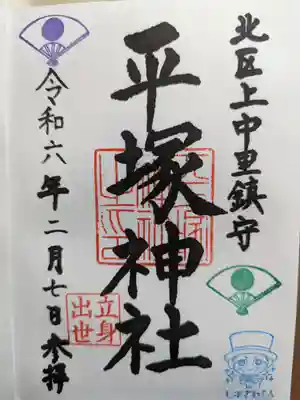 北区上中里鎮守
平塚神社
立身
出世
令和六年二月七日参拝